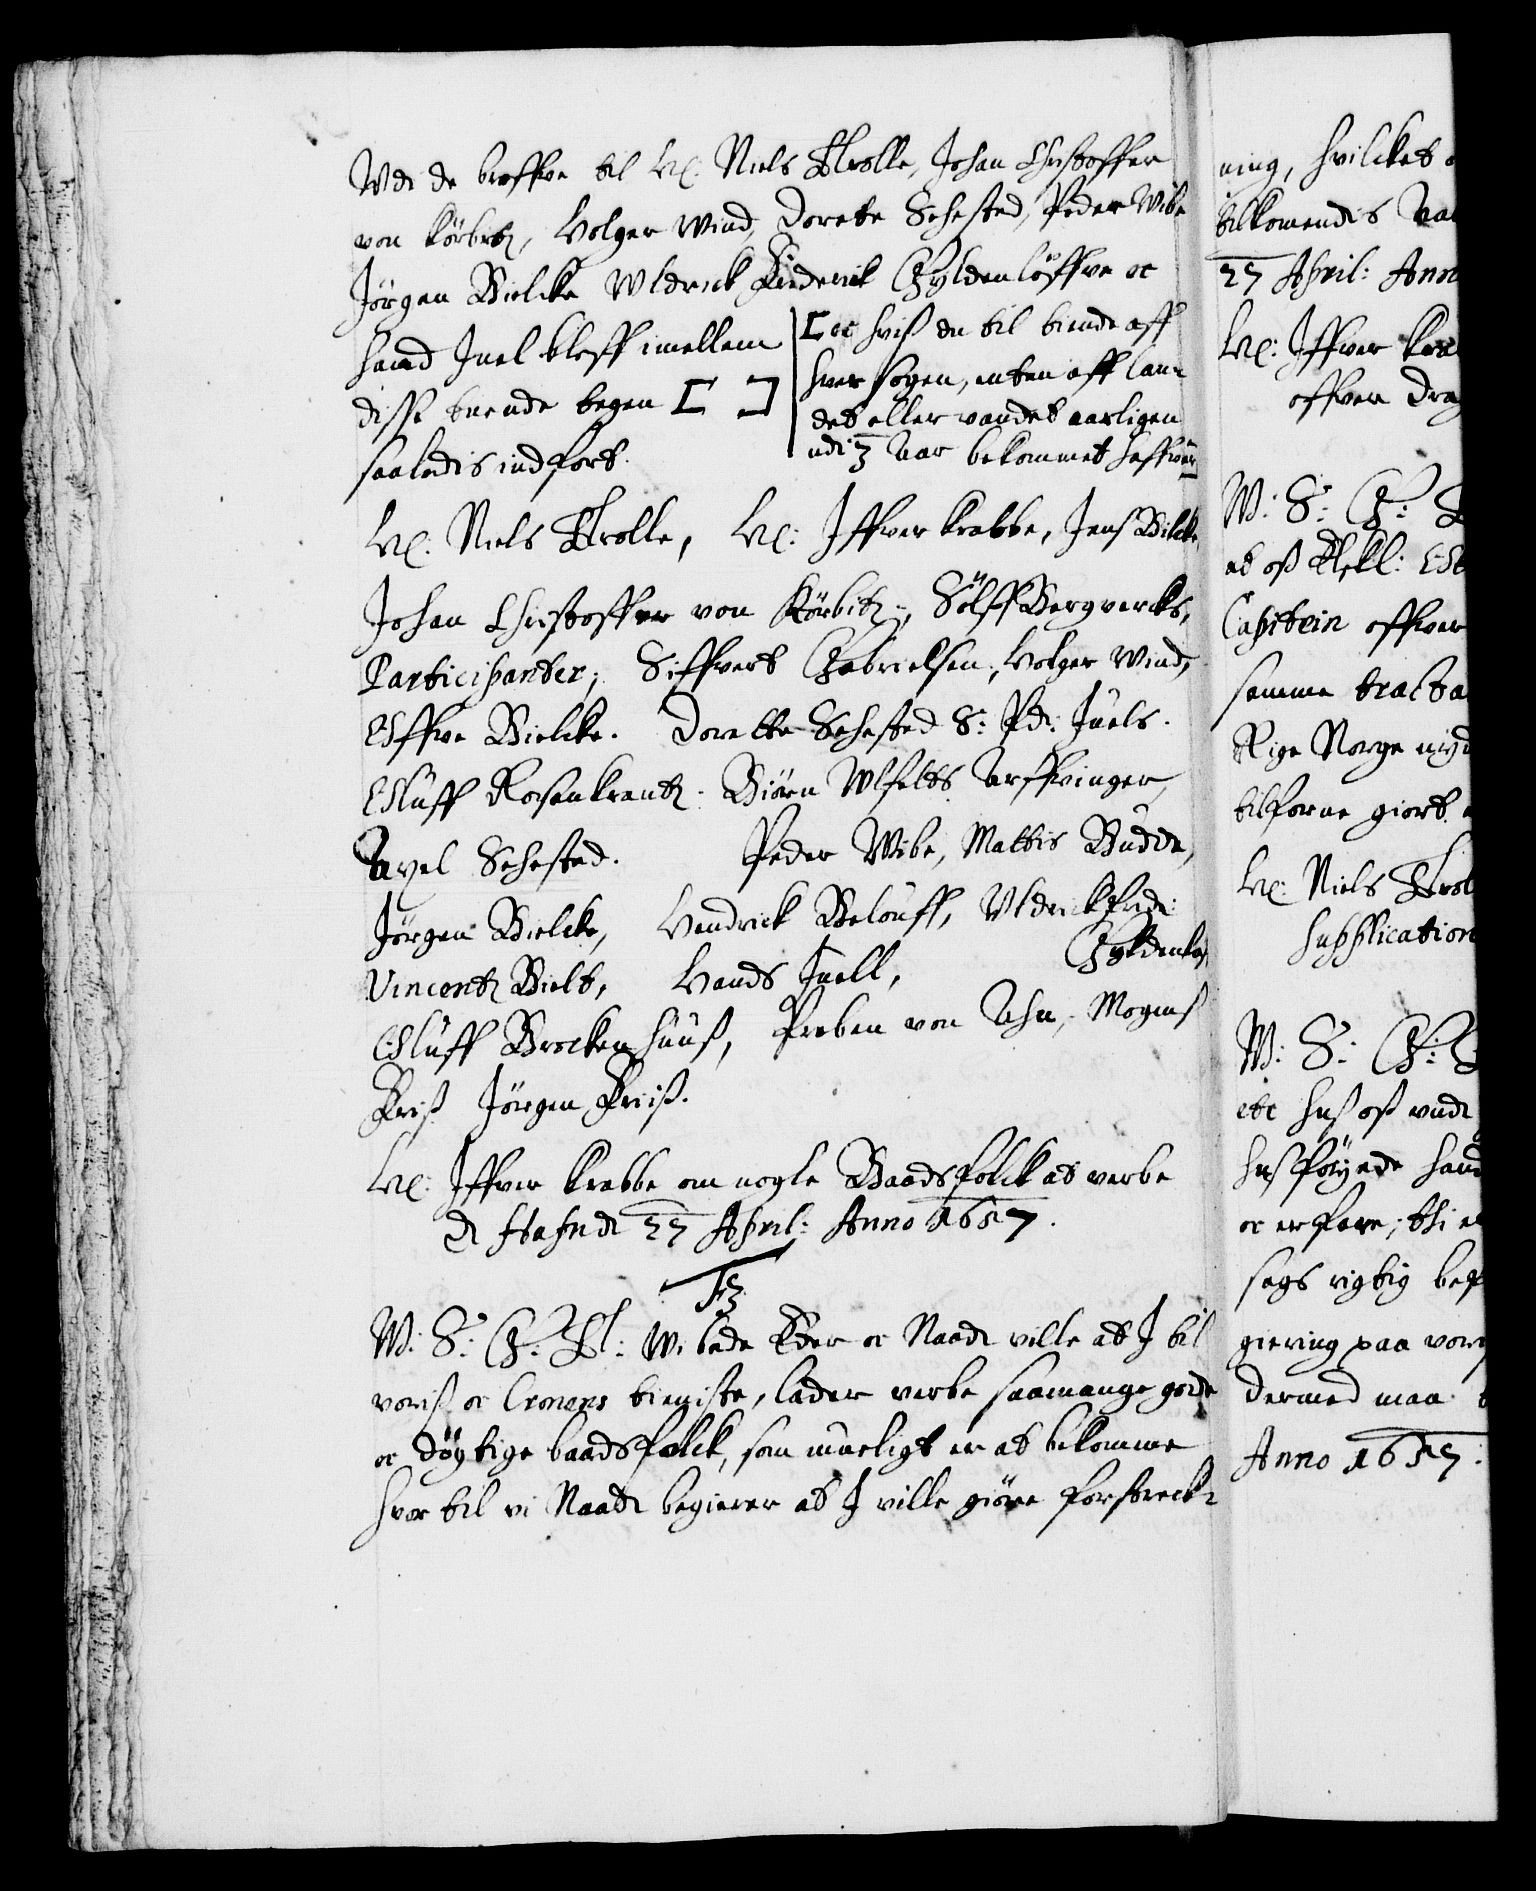 Udi de breffve til H: Niels Trolle, Johan Christoffer
von Körbitz, Holger Wind, Dorete Sehested, Peder Wibe
Jörgen Bielcke Uldrick Friderick Gyldenlöffve oc
Hand Juel bleff imellem
disse tuende tegen [ ]
saaledis indfört.
[ oc huiss en til tiende aff
huer sogen, enten aff lan-
det eller vandet aarligen
udi 3 Aar bekommet haffver
H: Niels Trolle, H: Iffver Krabbe, Jens Bilcke
Johan Christoffer von Körbitz, Sölff Bergvercks,
Participanter, Siffvert Gabrielsen, Holger Wind,
Offve Bielcke. Dorette Sehested S: Pd: Juels.
Oluff Rosenkrantz. Biörn Ulfelds Arffvinger,
Axel Sehested. Peder Wibe, Mattis Budde,
Jörgen Bielcke, Hendrick Belouff, Uldrick Frid:
Gyldenlöf,
Vincentz Bielt, Hands Juell,
Oluff Brockenhuuss, Preben von Ahn, Mogens
Friss Jörgen Friiss.
H: Iffver Krabbe om nogle Baadsfolck at verbe
D Hafn d 27 April: Anno 1657.
F3
W: S: G: T: Wi bede Eder oc Naad: ville at I til
voriss oc Cronens tieniste, lader verbe saamange gode
oc döytige baadsfolck, som mueligt er at bekomme
hvor til vi Naad: begierer at I ville giöre forstreck-
ning, hvilcket
tilkomendis Aar
27 April: Anno
H: Iffver Kra
offver Drag
W: S: G:
at oss Elskl:
Capitein offver
samme tracta
Rige Norge
tilforne giort.
H: Niels Trol
supplication
W: S: G:
etc hos oss und
hosföyede
oc erfare, thi
sags rigtig
giering paa vor
dermed maa
Anno 1657: